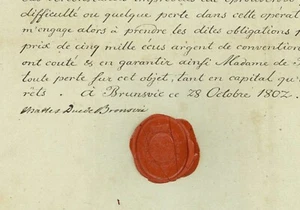 difficulté ou quelque perte dans cette opérat
m'engage alors à prendre les dites obligations
prix de cinq mille écus argent de convention
ont couté & en garantir ainsi Madame de
toute perte sur cet objet, tant en capital qu'
rêts. À Brunsvic ce 28 Octobre 1802.
Charles Duc de Brunsvic